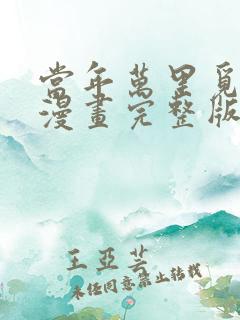 當年萬里覓
漫畫完整版
王亞芸
未經同意禁止轉載